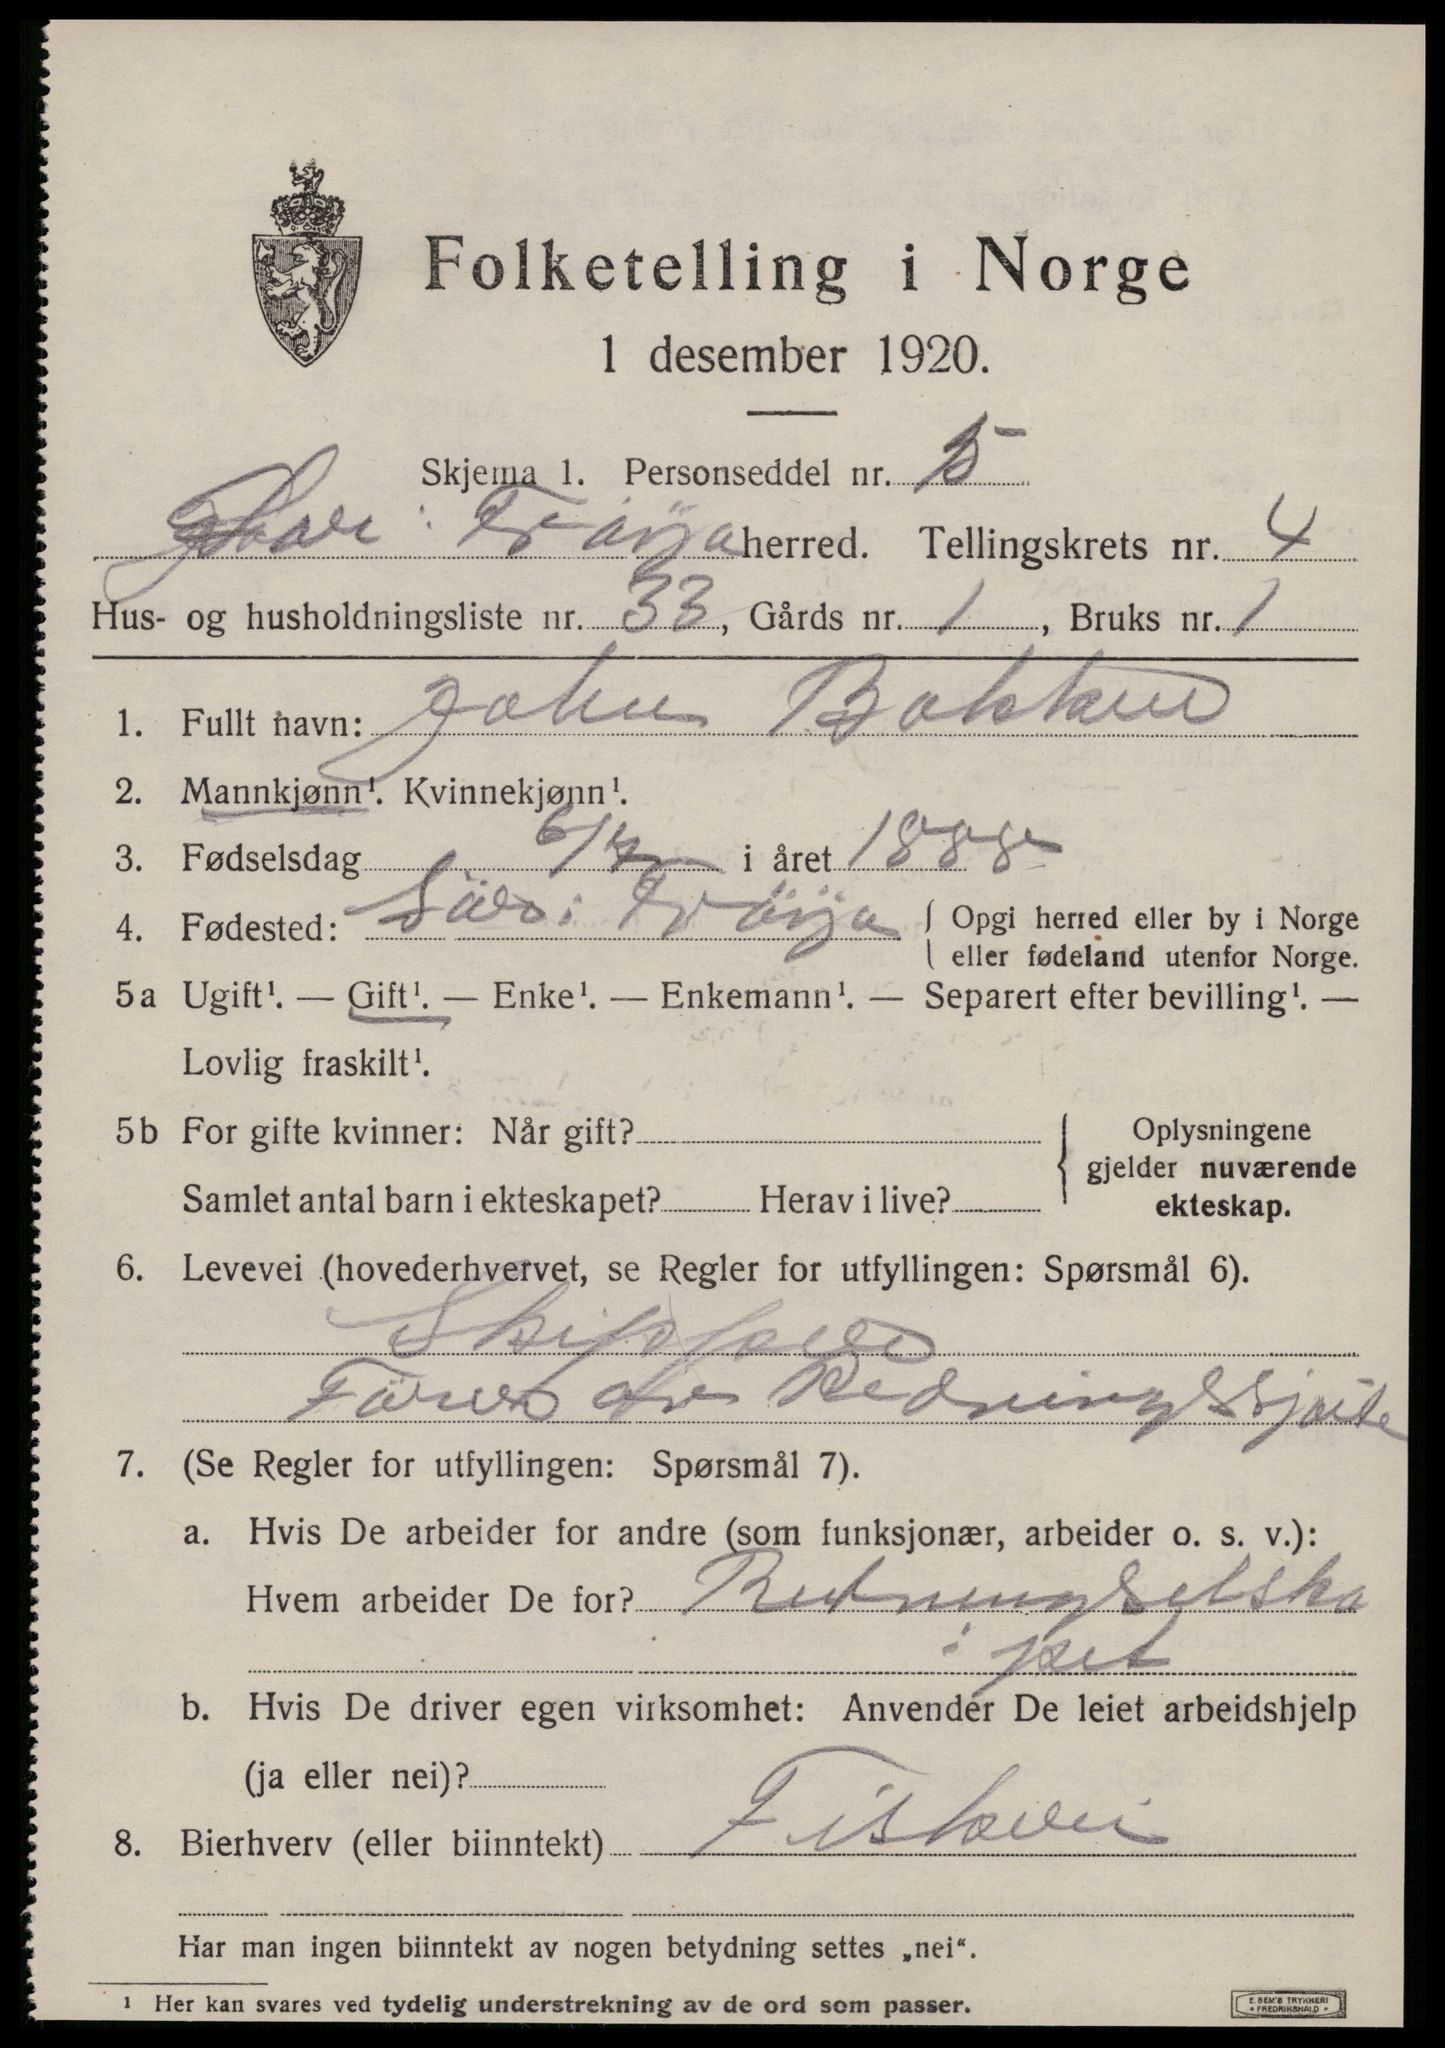 Folketelling i Norge
1 desember 1920.
Skjema 1. Personseddel nr. 5
Frøya herred. Tellingskrets nr. 4
Hus- og husholdningsliste nr. 33, Gårds nr. 1, Bruks nr. 1
1. Fullt navn: John Bakken
2. Mannkjønn¹. Kvinnekjønn¹.
3. Fødselsdag 6/4 i året 1888
4. Fødested: Sør Frøya { Opgi herred eller by i Norge
eller fødeland utenfor Norge.
5a Ugift¹. — Gift¹. — Enke¹. — Enkemann¹. — Separert efter bevilling¹. —
Lovlig fraskilt¹.
5b For gifte kvinner: Når gift?
Samlet antal barn i ekteskapet? Herav i live?
} Oplysningene
gjelder nuværende
ekteskap.
6. Levevei (hovederhvervet, se Regler for utfyllingen: Spørsmål 6).
Skipper
Förer av Redningsskjøite
7. (Se Regler for utfyllingen: Spørsmål 7).
a. Hvis De arbeider for andre (som funksjonær, arbeider o. s. v.):
Hvem arbeider De for? Redningselska
pet
b. Hvis De driver egen virksomhet: Anvender De leiet arbeidshjelp
(ja eller nei)?
8. Bierhverv (eller biinntekt) Fiskeri
Har man ingen biinntekt av nogen betydning settes „nei“.
¹ Her kan svares ved tydelig understrekning av de ord som passer.
E. SEM'S TRYKKERI
FREDRIKSHALD